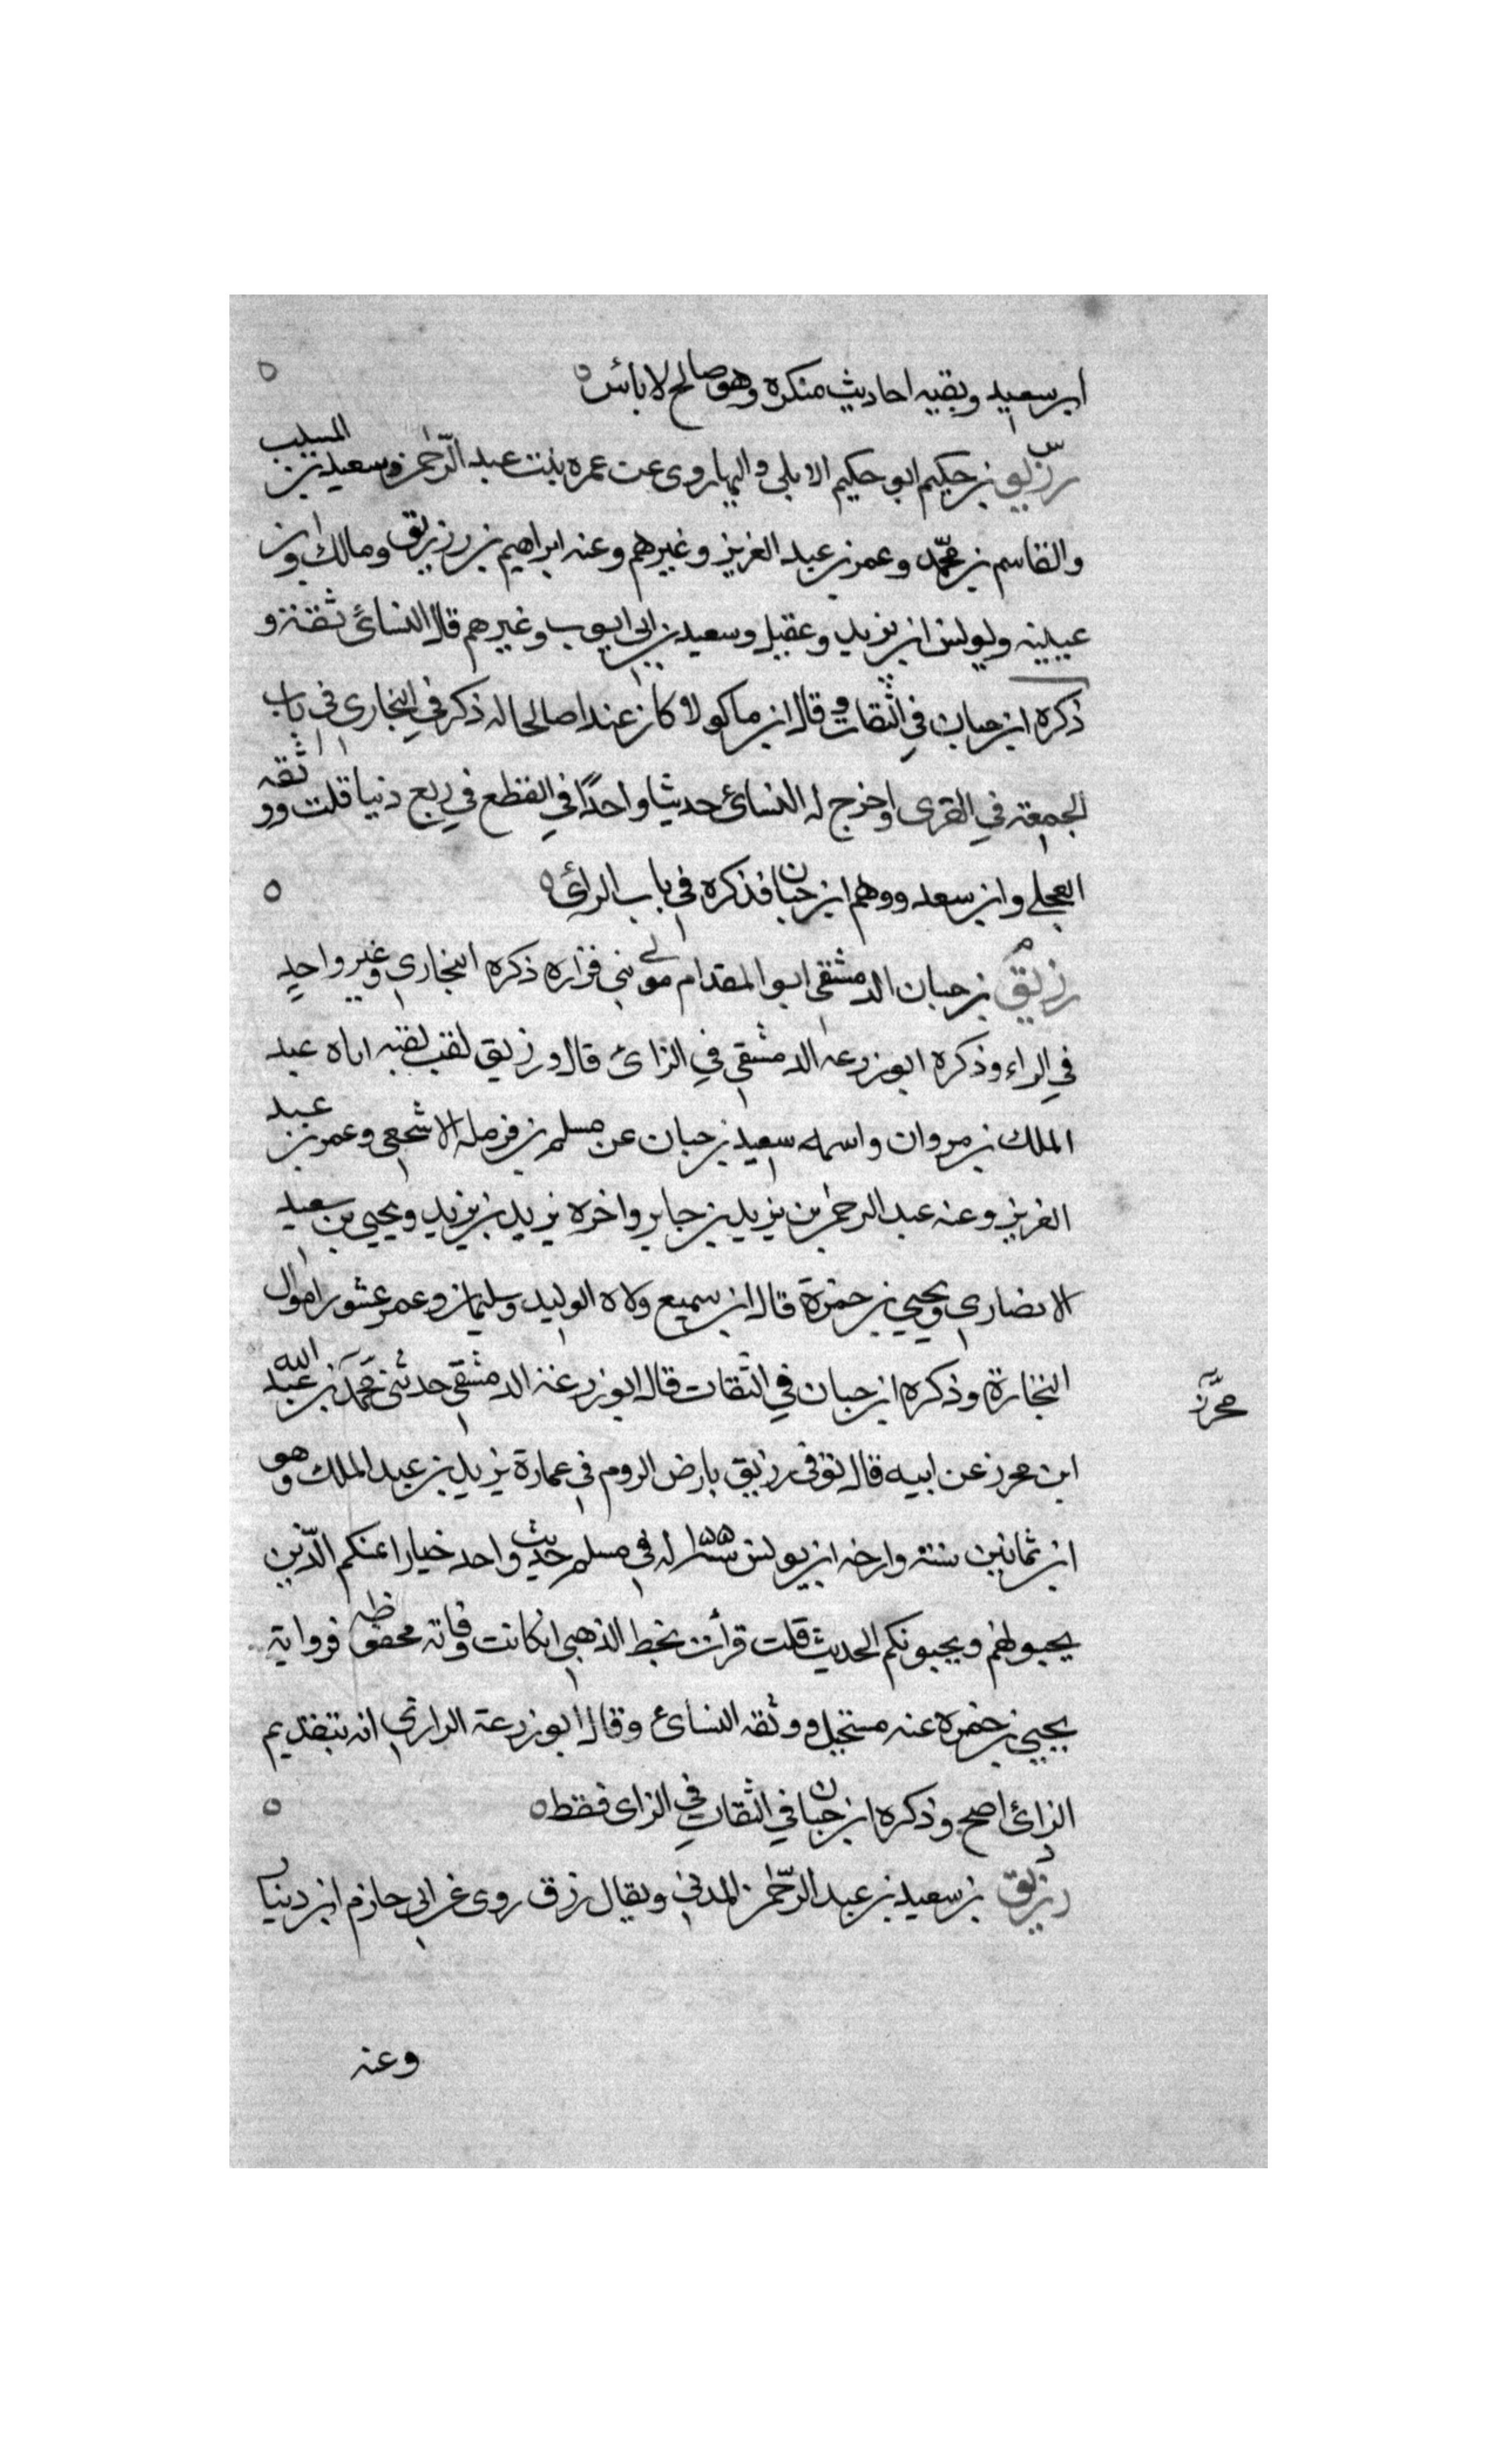 ابن سعيد وبقيه احاديث منكره وهو صالح لا باس
رزيق بن حكيم ابو حكيم الايلي واليها روى عن عمره بنت عبد الرحمن وسعيد بن المسيب
والقاسم بن محمد وعمر بن عبد العزيز وغيرهم وعنه ابراهيم بن رزيق ومالك وابن
عيينه ويونس ابن يزيد وعقيل وسعيد بن ابي ايوب وغيرهم قال النسائي ثقة و
ذكره ابن حبان في الثقات وقال ابن ماكولا كان عبدا صالحا له ذكر في البخاري في باب
الجمعة في القرى واخرج له النسائي حديثا واحدا في القطع في ربع دنيا قلت ووثقه
العجلي وابن سعد ووهم ابن حبان فذكره في باب الرائ
رزيق بن حبان الدمشقي ابو المقدام مولى بني فزاره ذكره البخاري وغير واحد
في الراء وذكره ابو زرعه الدمشقي في الزائ قال ورزيق لقب لقبه اياه عبد
الملك بن مروان واسمه سعيد بن حبان عن مسلم بن قرظه الاشجعي وعمر بن عبد
العزيز وعنه عبد الرحمن بن يزيد بن جابر واخوه يزيد بن يزيد ويحيى بن سعيد
الانصاري ويحيى بن حمزة قال ابن سميع ولاه الوليد وسليمان وعمر عشور اموال
التجارة وذكره ابن حبان في الثقات قال ابو زرعة الدمشقي حدثني محمد بن عبد الله
محرز
ابن محرز عن ابيه قال توفي رزيق بارض الروم في عمارة يزيد بن عبد الملك وهو
ابن ثمانين سنة وارخه ابن يونس له في مسلم حديث واحد خيار ائمتكم الذين
يحبونهم ويحبونكم الحديث قلت قرأت بخط الذهبي ان كانت وفاته محفوظه فرواية
يحيى بن حمزه عنه مستحيل ووثقه النسائي وقال ابو زرعة الرازي انه بتقديم
الزائ اصح وذكره ابن حبان في الثقات في الزاى فقط
رزيق بن سعيد بن عبد الرحمن المدني ويقال رزق روى عن ابي حازم ابن دينار
وعنه